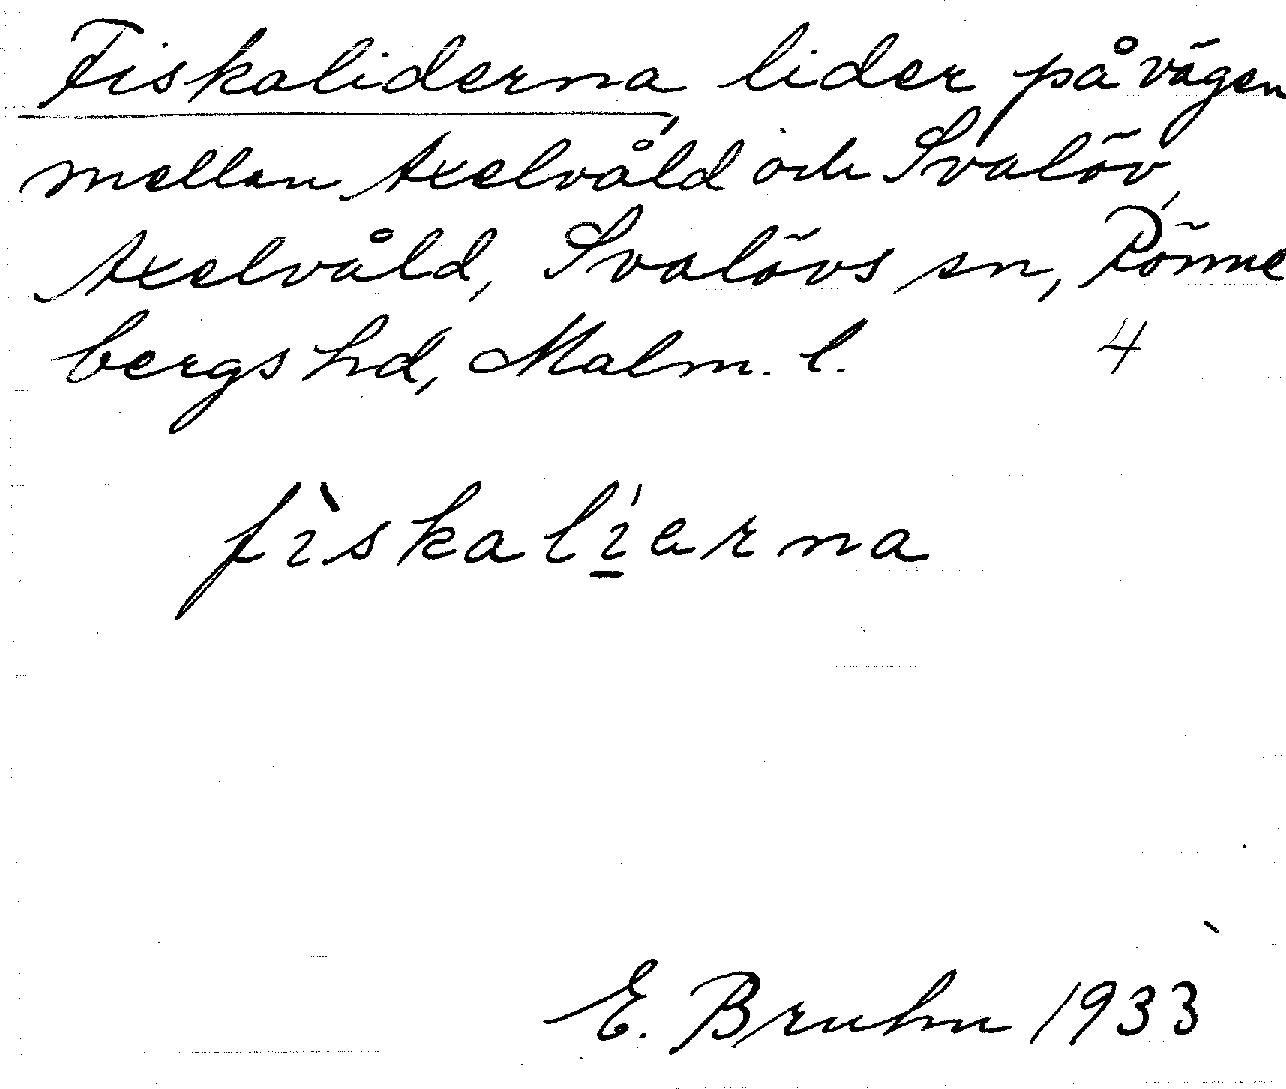 Fiskaliderna, lider på vägen
mellan Axelvåld och Svalöv,
Axelvåld, Svalövs sn, Rönne
bergs hd, Malm. l. 4
fìskalí̱erna
E. Bruhn 1933